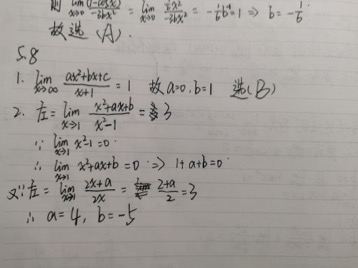 则 lim(x→0) (1-cosx)/(-3bx²) = lim(x→0) (½x²)/(-3bx²) = -1/6b = 1 ⇒ b = -1/6.
故选 (A).
5.8
1. lim(x→∞) (ax²+bx+c)/(x+1) = 1 故a=0, b=1 选(B)
2. 左= lim(x→1) (x²+ax+b)/(x²-1) = 3
∵ lim(x→1) x²-1=0
∴ lim(x→1) x²+ax+b=0 ⇒ 1+a+b=0
又∵左= lim(x→1) (2x+a)/(2x) = (2+a)/2 = 3
∴ a=4, b=-5